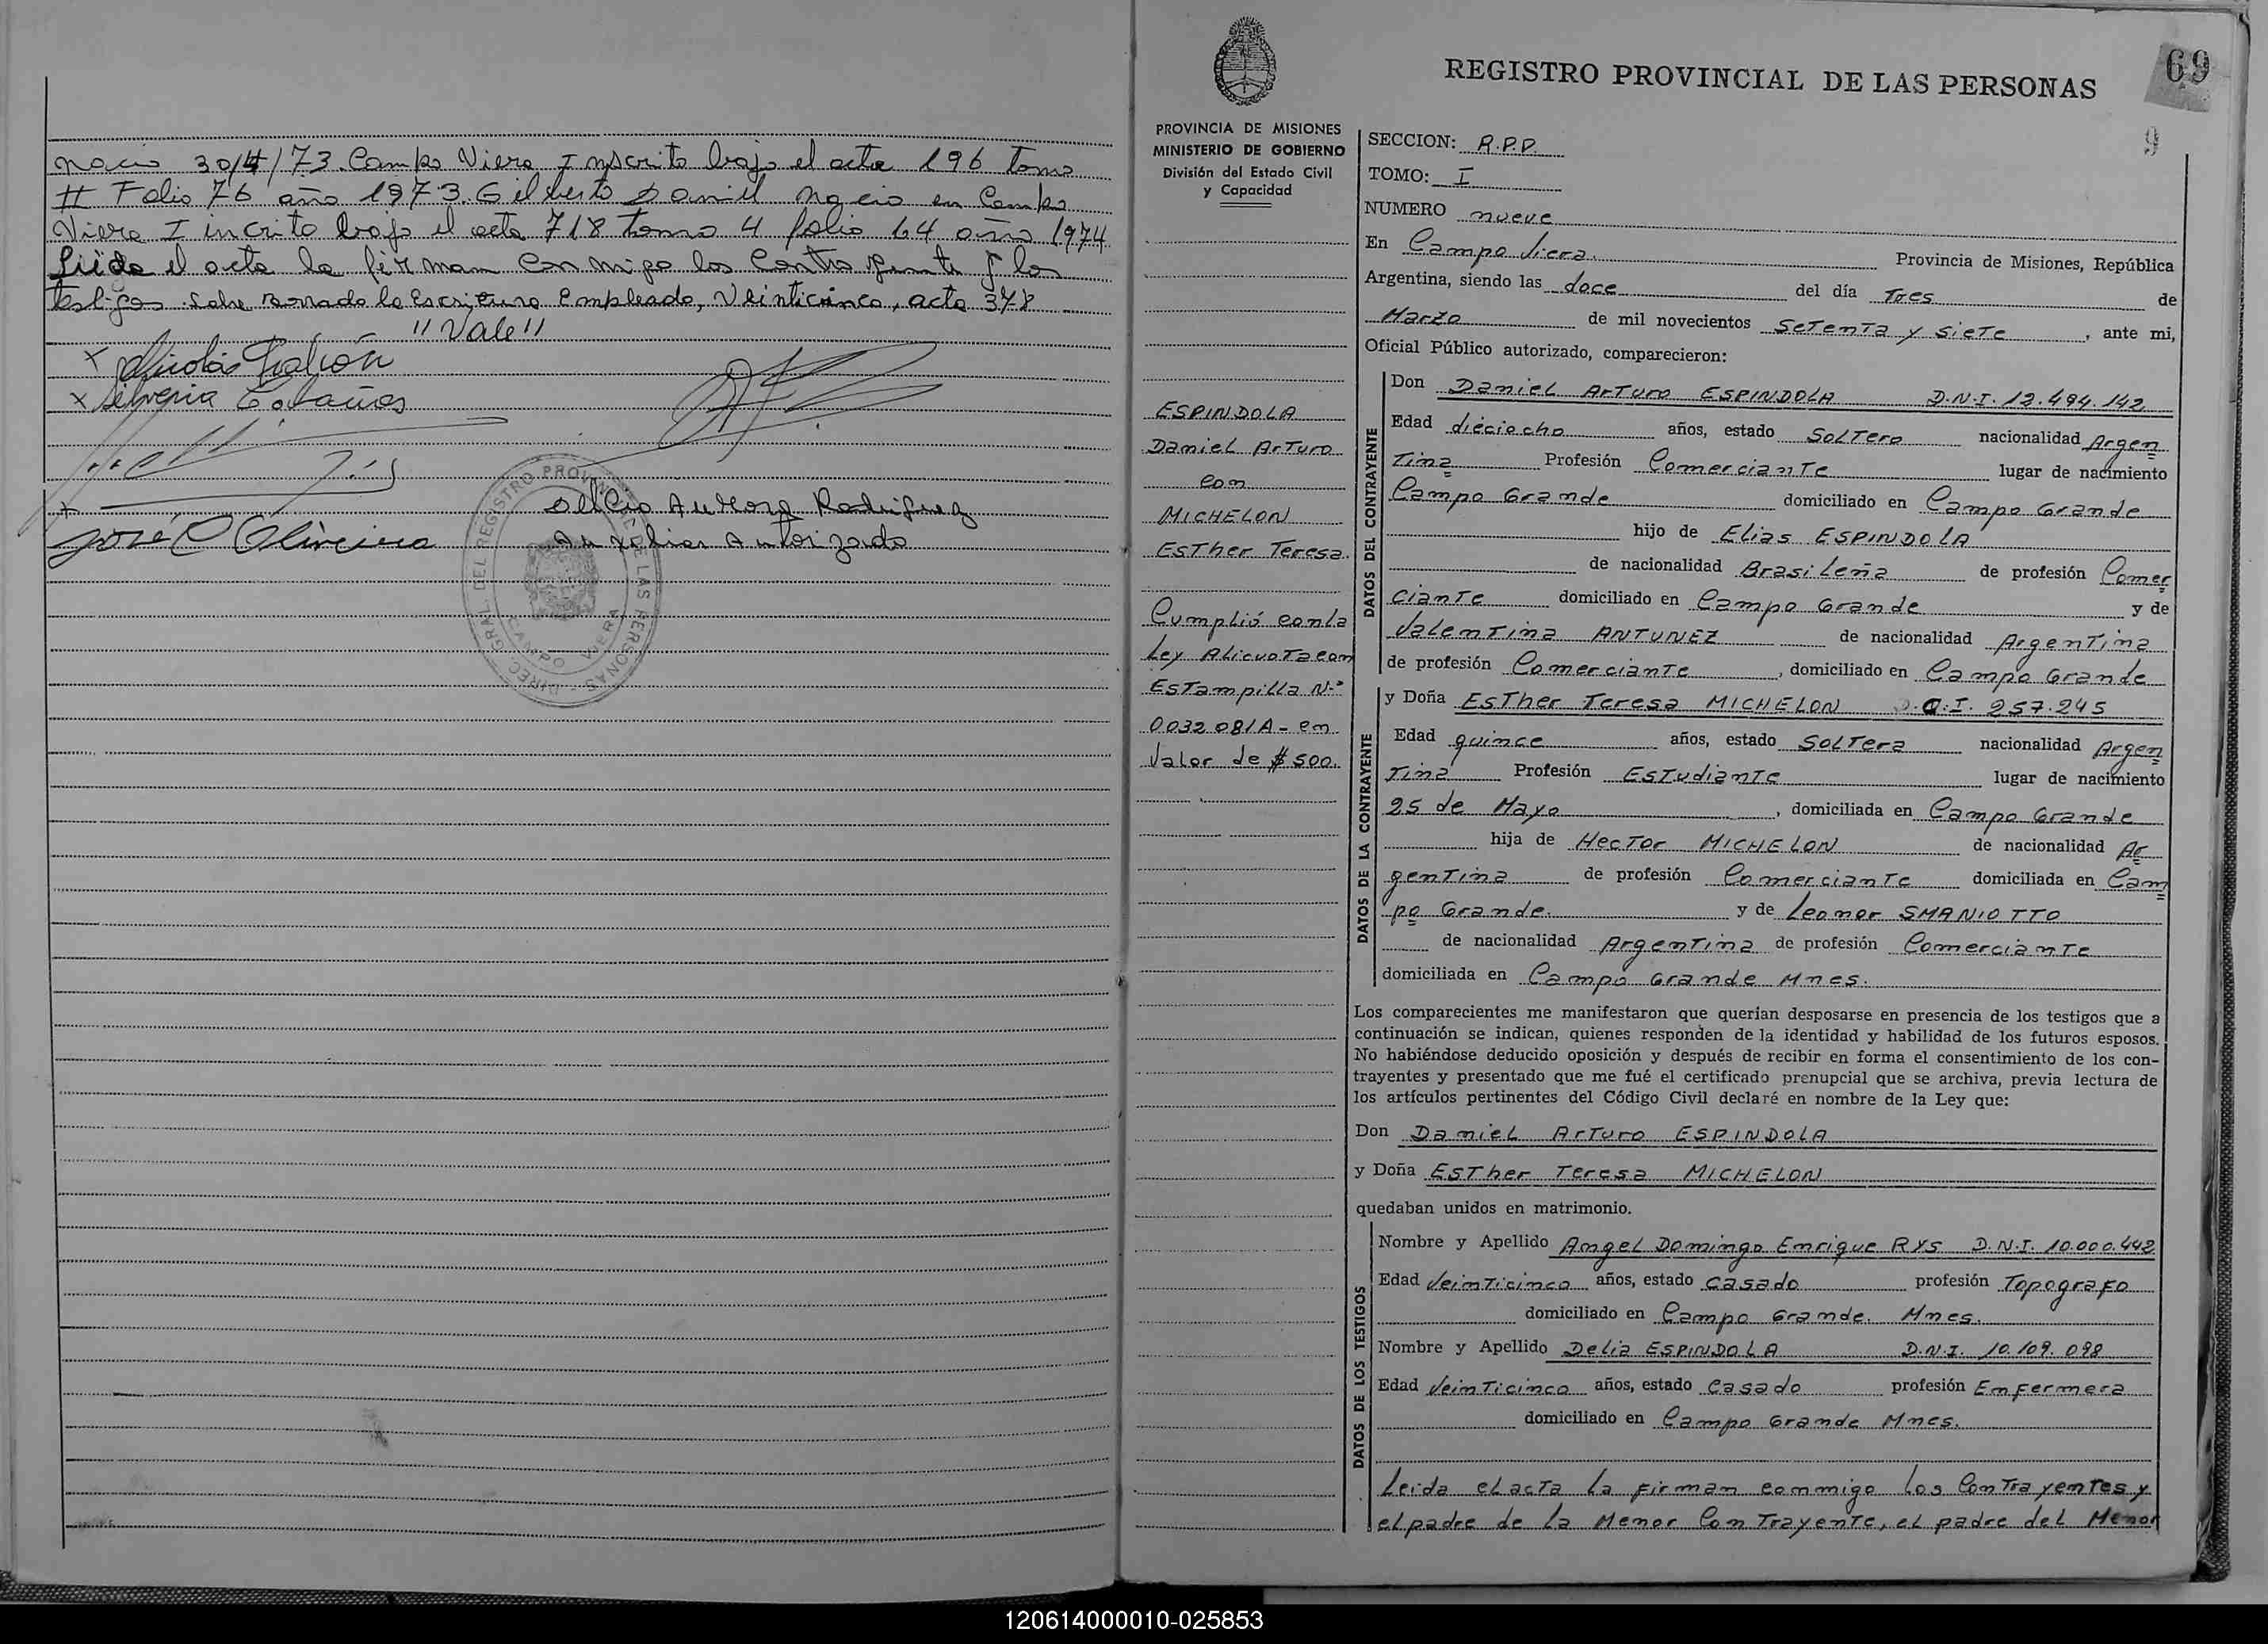 nacio 30/4/73. Campo Viera I inscrito bajo el acta 196 tomo
II Folio 76 año 1973. Gilberto Daniel nacio en Campo
Viera I incrito bajo el acta 718 tomo 4 folio 64 año 1974
Leida el acta la firman conmigo los Contrayente y los
testigos. Sobre borrado la Escritura Empleado, Veinticinco, acta 378
"Vale"
x Nicolás
x Silveria
x
José C Oliveira
Delicia Aurora Rodriguez
Auxiliar Autorizada
DIREC. GRAL. DEL REGISTRO PROVINCIAL DE LAS PERSONAS
CAMPO VIERA
69
9
REGISTRO PROVINCIAL DE LAS PERSONAS
PROVINCIA DE MISIONES
MINISTERIO DE GOBIERNO
División del Estado Civil
y Capacidad
ESPINDOLA
Daniel Arturo
con
MICHELON
Esther Teresa.
Cumplió con la
Ley Alicuota con
Estampilla N.°
0032081A- en
Valor de $500.
SECCION: R.P.P.
TOMO: I
NUMERO nueve
En Campo Viera. Provincia de Misiones, República
Argentina, siendo las doce del día Tres de
Marzo de mil novecientos Setenta y Siete, ante mi,
Oficial Público autorizado, comparecieron:
DATOS DEL CONTRAYENTE
Don Daniel Arturo ESPINDOLA D.N.I. 12.494.142
Edad dieciocho años, estado Soltero nacionalidad Argen
tina Profesión Comerciante lugar de nacimiento
Campo Grande domiciliado en Campo Grande
hijo de Elias ESPINDOLA
de nacionalidad Brasileña de profesión Comer
ciante domiciliado en Campo Grande y de
Valentina ANTUNEZ de nacionalidad Argentina
de profesión Comerciante, domiciliado en Campo Grande
DATOS DE LA CONTRAYENTE
y Doña Esther Teresa MICHELON C.I. 257.245
Edad quince años, estado Soltera nacionalidad Argen
tina Profesión Estudiante lugar de nacimiento
25 de Mayo, domiciliada en Campo Grande
hija de Hector MICHELON de nacionalidad Ar
gentina de profesión Comerciante domiciliada en Cam
po Grande. y de Leonor SMANIOTTO
de nacionalidad Argentina de profesión Comerciante
domiciliada en Campo Grande Mnes.
Los comparecientes me manifestaron que querían desposarse en presencia de los testigos que a
continuación se indican, quienes responden de la identidad y habilidad de los futuros esposos.
No habiéndose deducido oposición y después de recibir en forma el consentimiento de los con-
trayentes y presentado que me fué el certificado prenupcial que se archiva, previa lectura de
los artículos pertinentes del Código Civil declaré en nombre de la Ley que:
Don Daniel Arturo ESPINDOLA
y Doña Esther Teresa MICHELON
quedaban unidos en matrimonio.
DATOS DE LOS TESTIGOS
Nombre y Apellido Angel Domingo Enrique RYS D.N.I. 10.000.442
Edad Veinticinco años, estado Casado profesión Topografo
domiciliado en Campo Grande. Mnes.
Nombre y Apellido Delia ESPINDOLA D.N.I. 10.109.098
Edad Veinticinco años, estado Casado profesión Enfermera
domiciliado en Campo Grande Mnes.
Leida el acta la firman conmigo los Contrayentes y
el padre de la Menor Contrayente, el padre del Menor
120614000010-025853